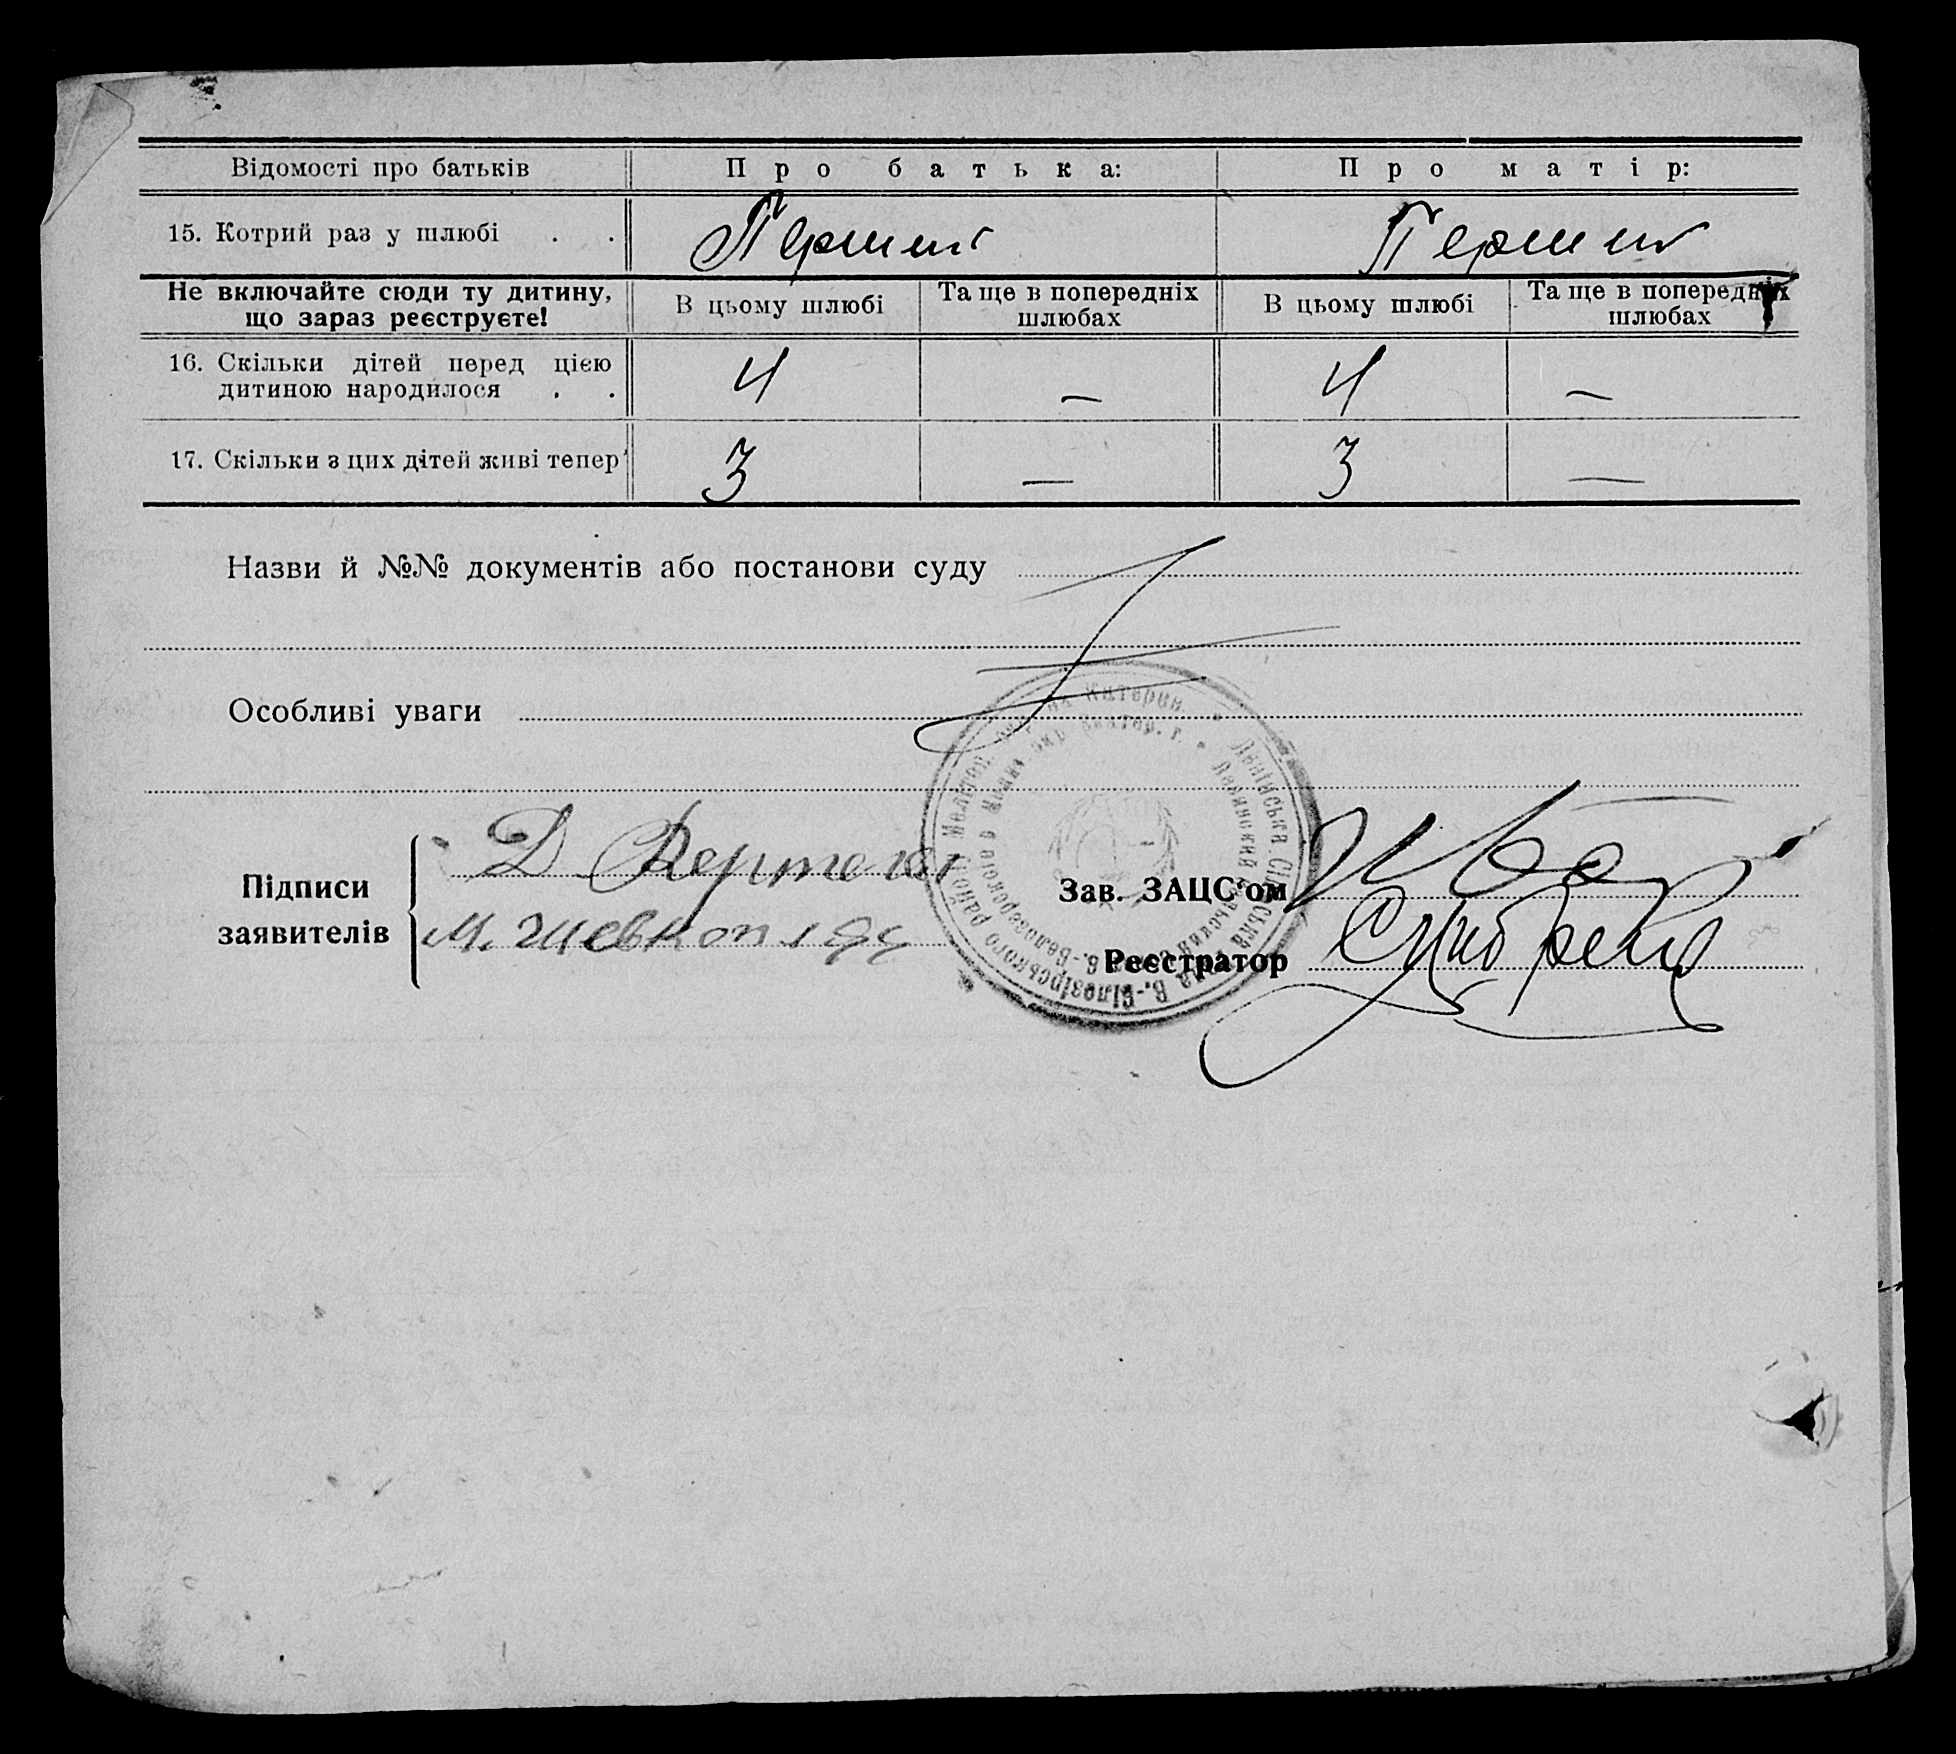 Відомості про батьків Про батька: Про матір:
15. Котрий раз у шлюбі . . Перший Перший
Не включайте сюди ту дитину, що зараз реєструєте!
В цьому шлюбі Та ще в попередніх шлюбах В цьому шлюбі Та ще в попередніх шлюбах
16. Скільки дітей перед цією
дитиною народилося . . 4 — 4 —
17. Скільки з цих дітей живі тепер 3 — 3 —
Назви й №№ документів або постанови суду
Особливі уваги
Підписи
заявителів
Д.
М. Шевкопляс
Зав. ЗАЦС'ом
Реєстратор